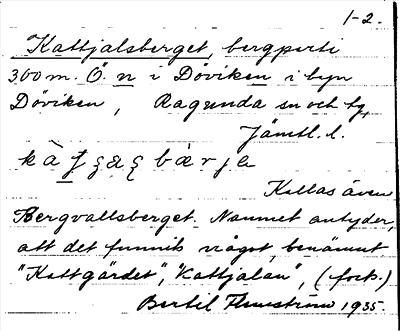 1-2.
Kattjalsberget, bergparti
300 m. Ö. n i Döviken i byn
Döviken, Ragunda sn och tg,
Jämtl. l.
Kallas även
Bergvallsberget. Namnet antyder,
att det funnits något, benämnt
"Kattgärdet", "Kattjalan", (fork.)
Bertil 1935.